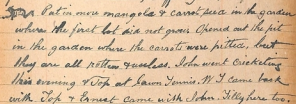 Put in more mangold & carrot seed in the garden
where the first lot did not grow. Opened out the pit
in the garden where the carrots were pitted, but
they are all rotten & useless. John went Cricketing
this evening & Top at Lawn Tennis. W. J. came back
with Top & Ernest came with John. Tilly here too